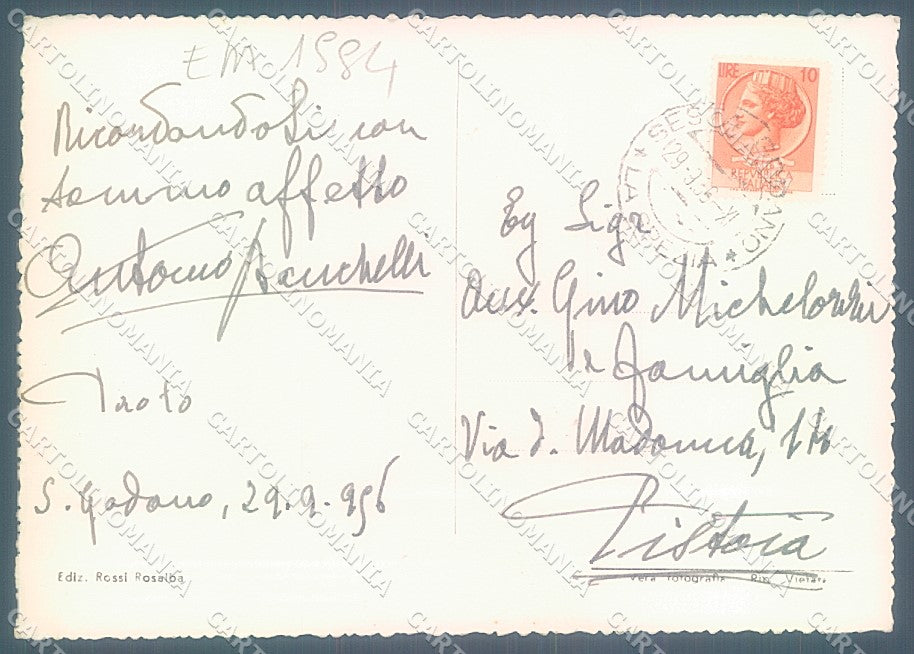 EM 1984
Ricordandoli con
sommo affetto
Antonio
Prato
S. Godano, 29.9.956
Ediz. Rossi Rosalba
LIRE 10
REPVBBLICA
ITALIANA
SESTA GODANO
* LA SPEZIA *
Eg Sigr
Gino Michelozzi
e famiglia
Via d. Madonna, 14
Pistoia
Vera fotografia Rip. Vietata
CARTOLINOMANIA